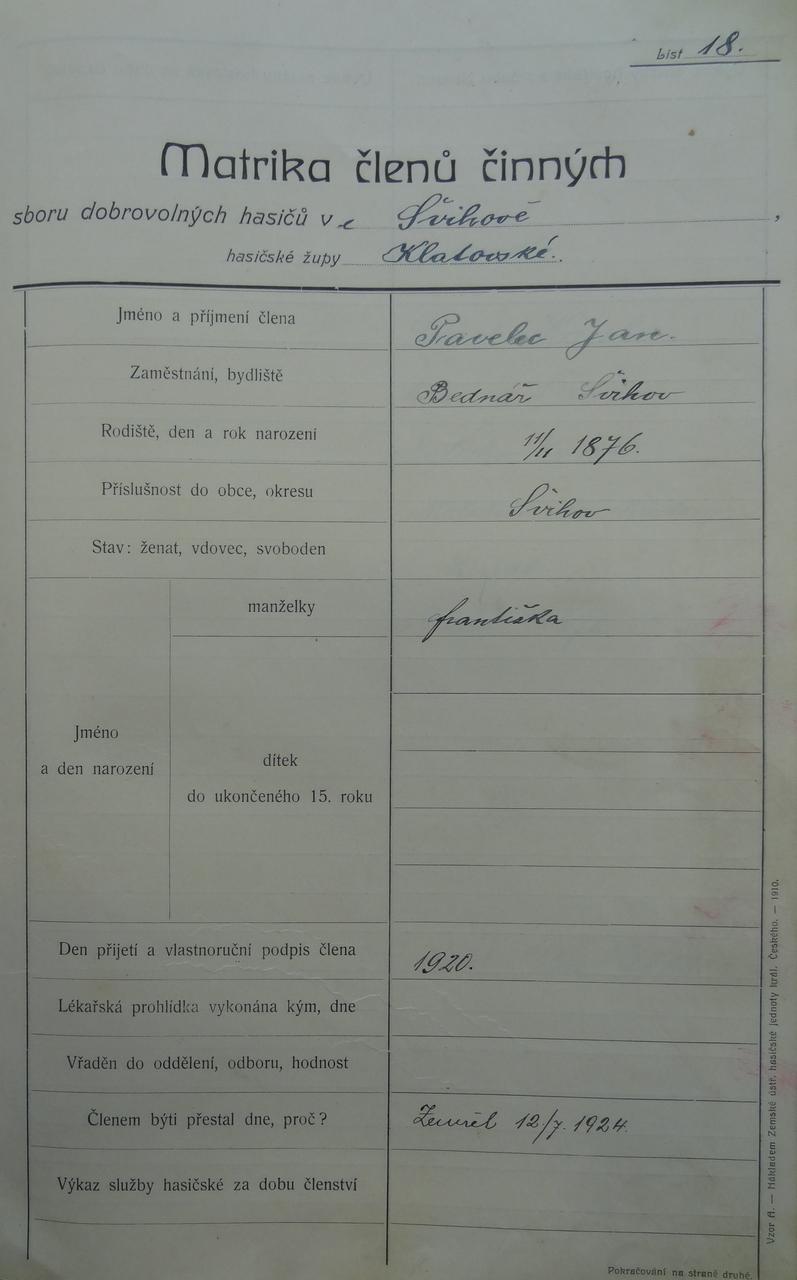 List 18.
Matrika členů činných
sboru dobrovolných hasičů v e Švihově,
hasičské župy Klatovské.
Jméno a příjmení člena Pavelec Jan.
Zaměstnání, bydliště Bednář Švihov
Rodiště, den a rok narození 11/11 1876.
Příslušnost do obce, okresu Švihov
Stav: ženat, vdovec, svoboden
manželky františka
Jméno
a den narození
dítek
do ukončeného 15. roku
Den přijetí a vlastnoruční podpis člena 1920.
Lékařská prohlídka vykonána kým, dne
Vřaděn do oddělení, odboru, hodnost
Členem býti přestal dne, proč? Zemřel 12/7. 1924.
Výkaz služby hasičské za dobu členství
Vzor A. — Nákladem Zemské ústř. hasičské jednoty král. Českého. — 1910.
Pokračování na straně druhé.